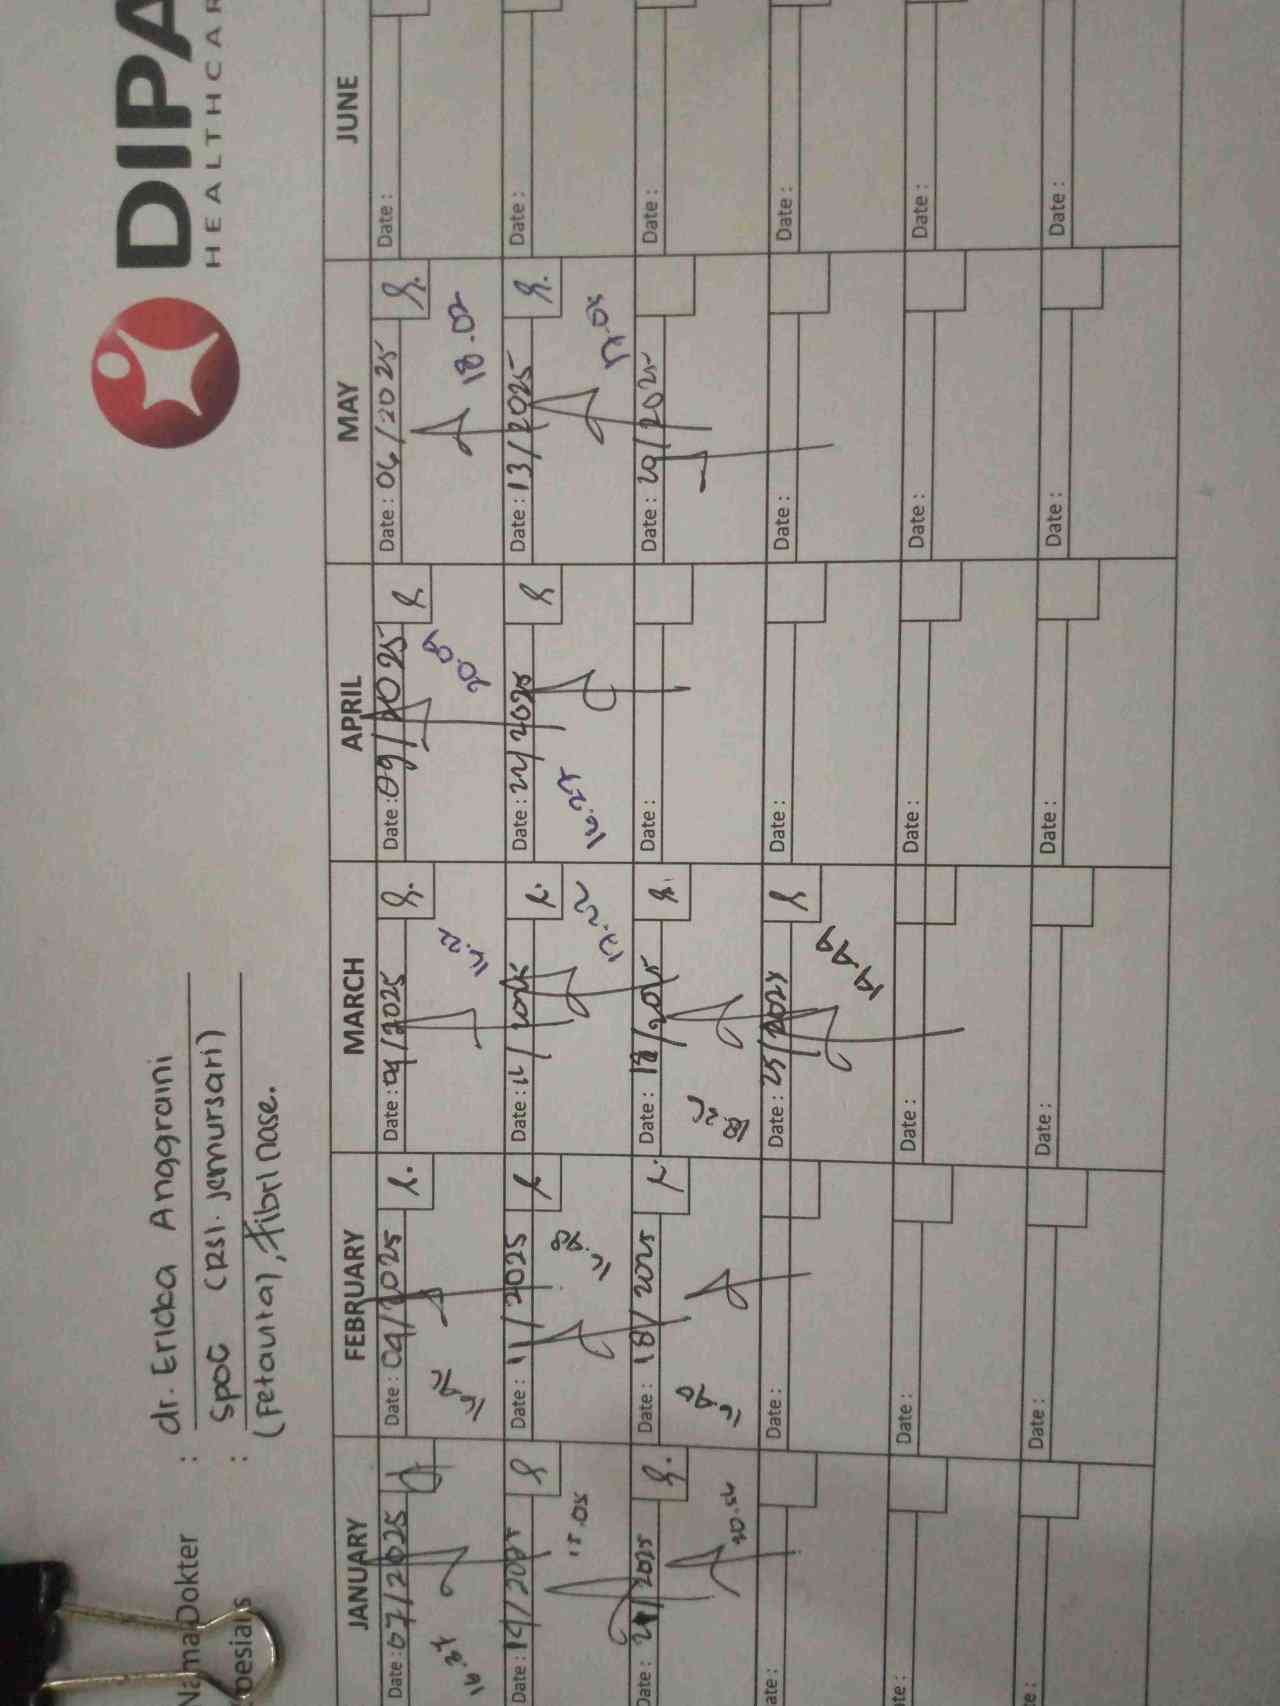 DIPA
HEALTHCAR
Nama Dokter : dr. Ericka Anggraini
pesialis : SpOG (RSI. Jemursari)
(Fetavita), Fibrinase.
JANUARY FEBRUARY MARCH APRIL MAY JUNE
Date : 07/2025 Date : 04/2025 Date : 04/2025 Date : 09/2025 Date : 06/2025 Date :
16.37 16.22 20.09 18.02
Date : 14/2025 Date : 11/2025 Date : 11/2025 Date : 22/2025 Date : 13/2025 Date :
15.05 16.48 17.22 16.27 17.05
Date : 21/2025 Date : 18/2025 Date : 18/2025 Date : Date : 20/2025 Date :
20.54 16.40 18.25
ate : Date : Date : 25/2025 Date : Date : Date :
19.49
te : Date : Date : Date : Date : Date :
te : Date : Date : Date : Date : Date :